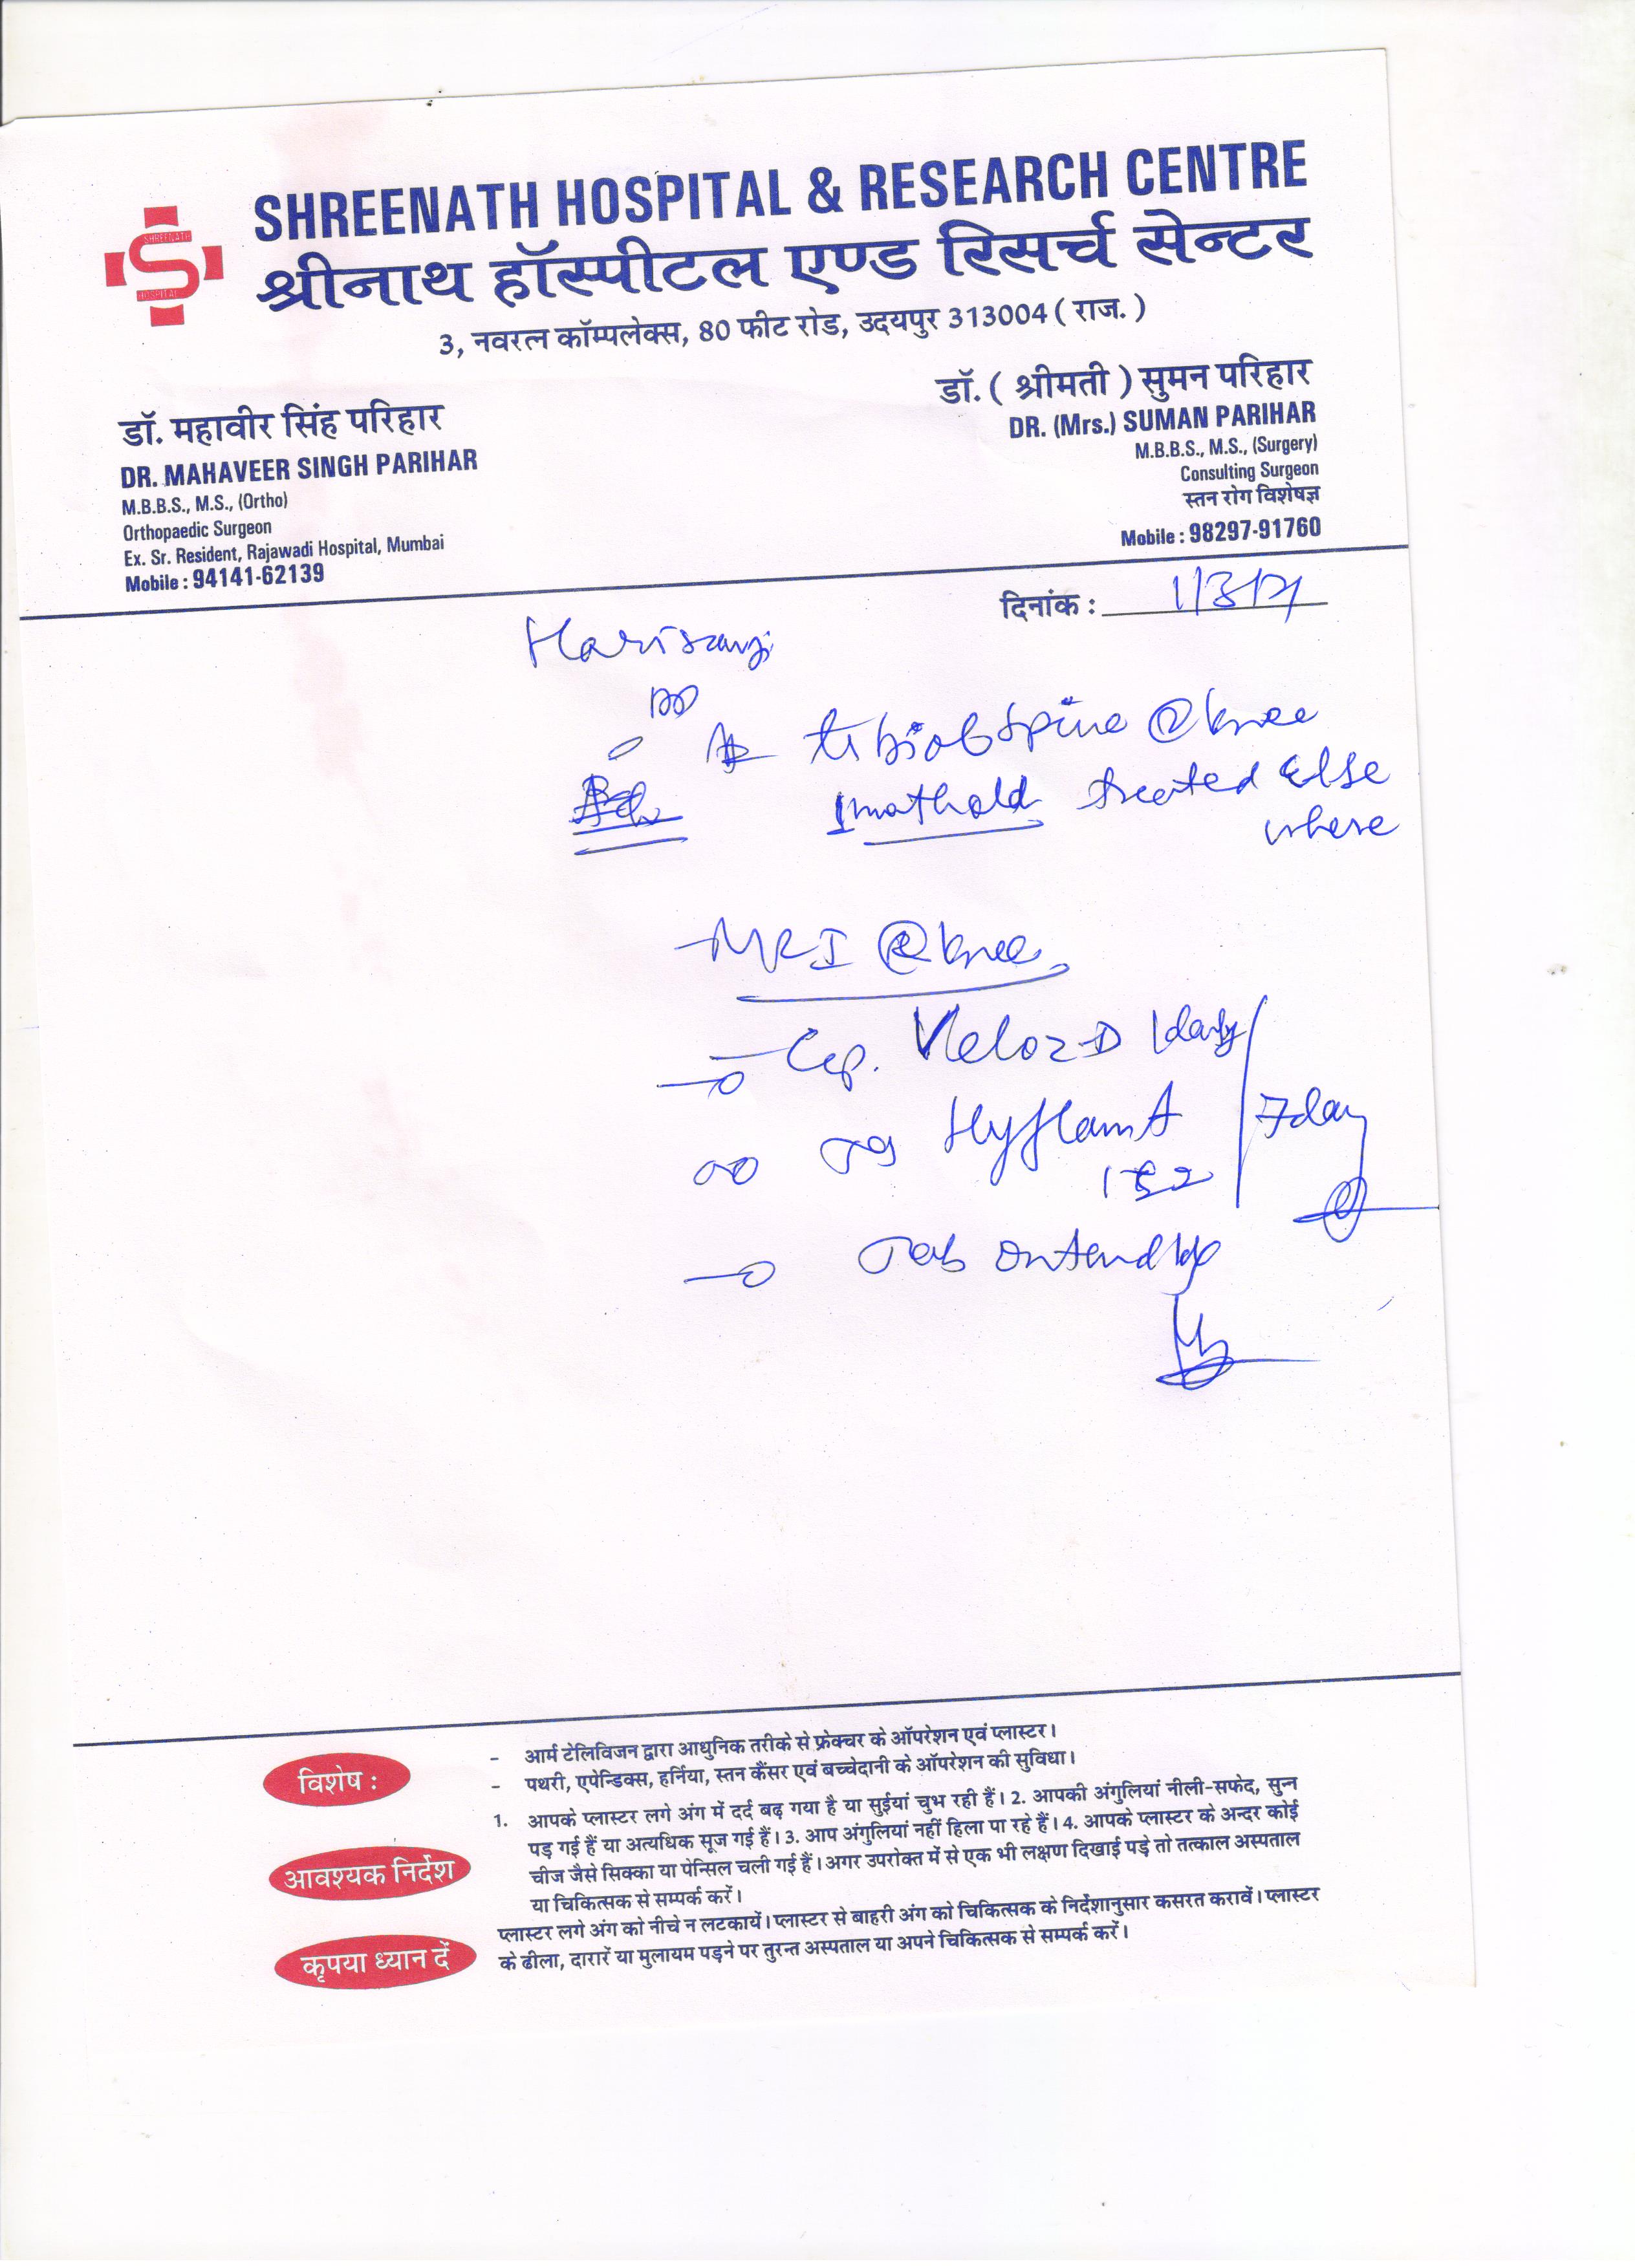 SHREENATH HOSPITAL & RESEARCH CENTRE
SHREENATH
HOSPITAL
श्रीनाथ हॉस्पीटल एण्ड रिसर्च सेन्टर
3, नवरत्न कॉम्पलेक्स, 80 फीट रोड, उदयपुर 313004 ( राज. )
डॉ. महावीर सिंह परिहार
DR. MAHAVEER SINGH PARIHAR
M.B.B.S., M.S., (Ortho)
Orthopaedic Surgeon
Ex. Sr. Resident, Rajawadi Hospital, Mumbai
Mobile : 94141-62139
डॉ. ( श्रीमती ) सुमन परिहार
DR. (Mrs.) SUMAN PARIHAR
M.B.B.S., M.S., (Surgery)
Consulting Surgeon
स्तन रोग विशेषज्ञ
Mobile : 98297-91760
दिनांक :
spine R knee
treated Else
where
MRI R knee
7 day
Tab
विशेष :
- आर्म टेलिविजन द्वारा आधुनिक तरीके से फ्रेक्चर के ऑपरेशन एवं प्लास्टर।
- पथरी, एपेन्डिक्स, हर्निया, स्तन कैंसर एवं बच्चेदानी के ऑपरेशन की सुविधा।
आवश्यक निर्देश
1. आपके प्लास्टर लगे अंग में दर्द बढ़ गया है या सुईयां चुभ रही हैं। 2. आपकी अंगुलियां नीली-सफेद, सुन्न
पड़ गई हैं या अत्यधिक सूज गई हैं। 3. आप अंगुलियां नहीं हिला पा रहे हैं। 4. आपके प्लास्टर के अन्दर कोई
चीज जैसे सिक्का या पेन्सिल चली गई हैं। अगर उपरोक्त में से एक भी लक्षण दिखाई पड़े तो तत्काल अस्पताल
या चिकित्सक से सम्पर्क करें।
कृपया ध्यान दें
प्लास्टर लगे अंग को नीचे न लटकायें। प्लास्टर से बाहरी अंग को चिकित्सक के निर्देशानुसार कसरत करावें। प्लास्टर
के ढीला, दारारें या मुलायम पड़ने पर तुरन्त अस्पताल या अपने चिकित्सक से सम्पर्क करें।